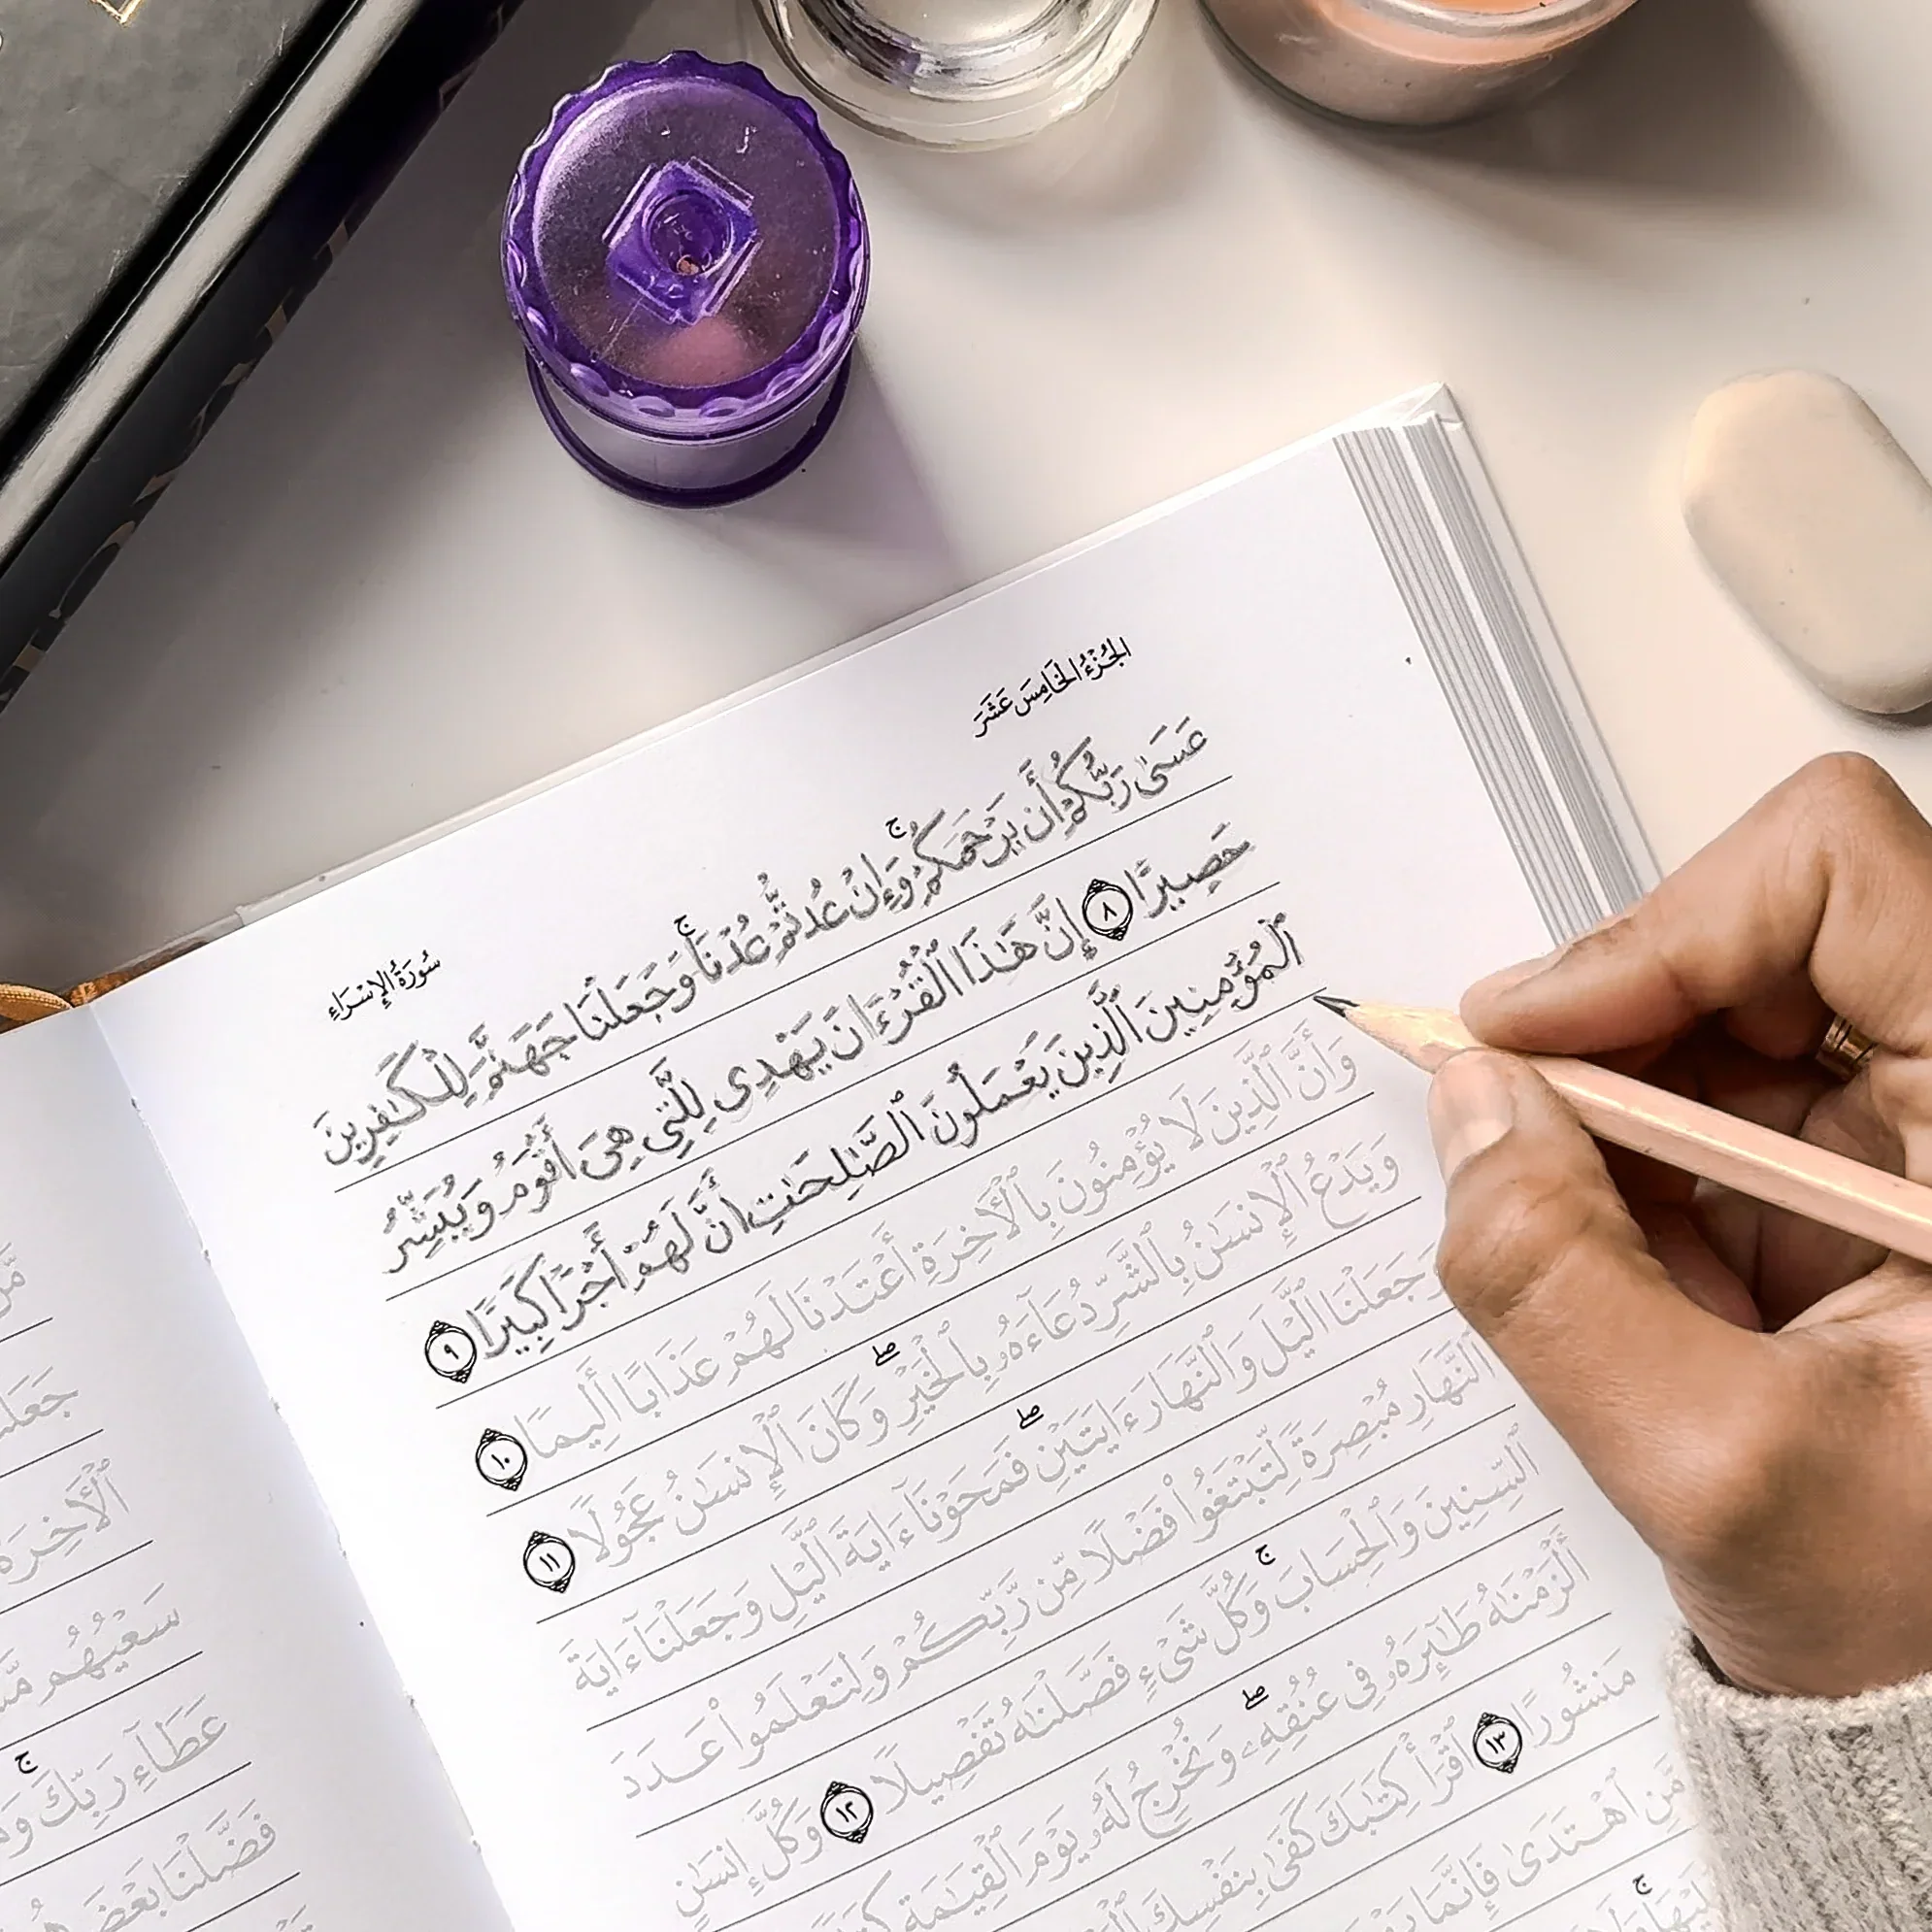 الجُزْءُ الخَامِسَ عَشَرَ
سُورَةُ الإِسْرَاءِ
عَسَىٰ رَبُّكُمْ أَن يَرْحَمَكُمْ ۚ وَإِنْ عُدتُّمْ عُدْنَا ۚ وَجَعَلْنَا جَهَنَّمَ لِلْكَـٰفِرِينَ
حَصِيرًا ٨ إِنَّ هَـٰذَا ٱلْقُرْءَانَ يَهْدِى لِلَّتِى هِىَ أَقْوَمُ وَيُبَشِّرُ
ٱلْمُؤْمِنِينَ ٱلَّذِينَ يَعْمَلُونَ ٱلصَّـٰلِحَـٰتِ أَنَّ لَهُمْ أَجْرًا كَبِيرًا ٩
وَأَنَّ ٱلَّذِينَ لَا يُؤْمِنُونَ بِٱلْـَٔاخِرَةِ أَعْتَدْنَا لَهُمْ عَذَابًا أَلِيمًا ١٠
وَيَدْعُ ٱلْإِنسَـٰنُ بِٱلشَّرِّ دُعَآءَهُۥ بِٱلْخَيْرِ ۖ وَكَانَ ٱلْإِنسَـٰنُ عَجُولًا ١١
وَجَعَلْنَا ٱلَّيْلَ وَٱلنَّهَارَ ءَايَتَيْنِ ۖ فَمَحَوْنَآ ءَايَةَ ٱلَّيْلِ وَجَعَلْنَآ ءَايَةَ
ٱلنَّهَارِ مُبْصِرَةً لِّتَبْتَغُوا۟ فَضْلًا مِّن رَّبِّكُمْ وَلِتَعْلَمُوا۟ عَدَدَ
ٱلسِّنِينَ وَٱلْحِسَابَ ۚ وَكُلَّ شَىْءٍ فَصَّلْنَـٰهُ تَفْصِيلًا ١٢ وَكُلَّ إِنسَـٰنٍ
أَلْزَمْنَـٰهُ طَـٰٓئِرَهُۥ فِى عُنُقِهِۦ ۖ وَنُخْرِجُ لَهُۥ يَوْمَ ٱلْقِيَـٰمَةِ
مَنشُورًا ١٣ ٱقْرَأْ كِتَـٰبَكَ كَفَىٰ بِنَفْسِكَ
مَّنِ ٱهْتَدَىٰ فَإِنَّمَا
جَعَلْنَا
ٱلْـَٔاخِرَةَ
سَعْيُهُم
عَطَآءِ رَبِّكَ ۚ
فَضَّلْنَا بَعْضَهُمْ